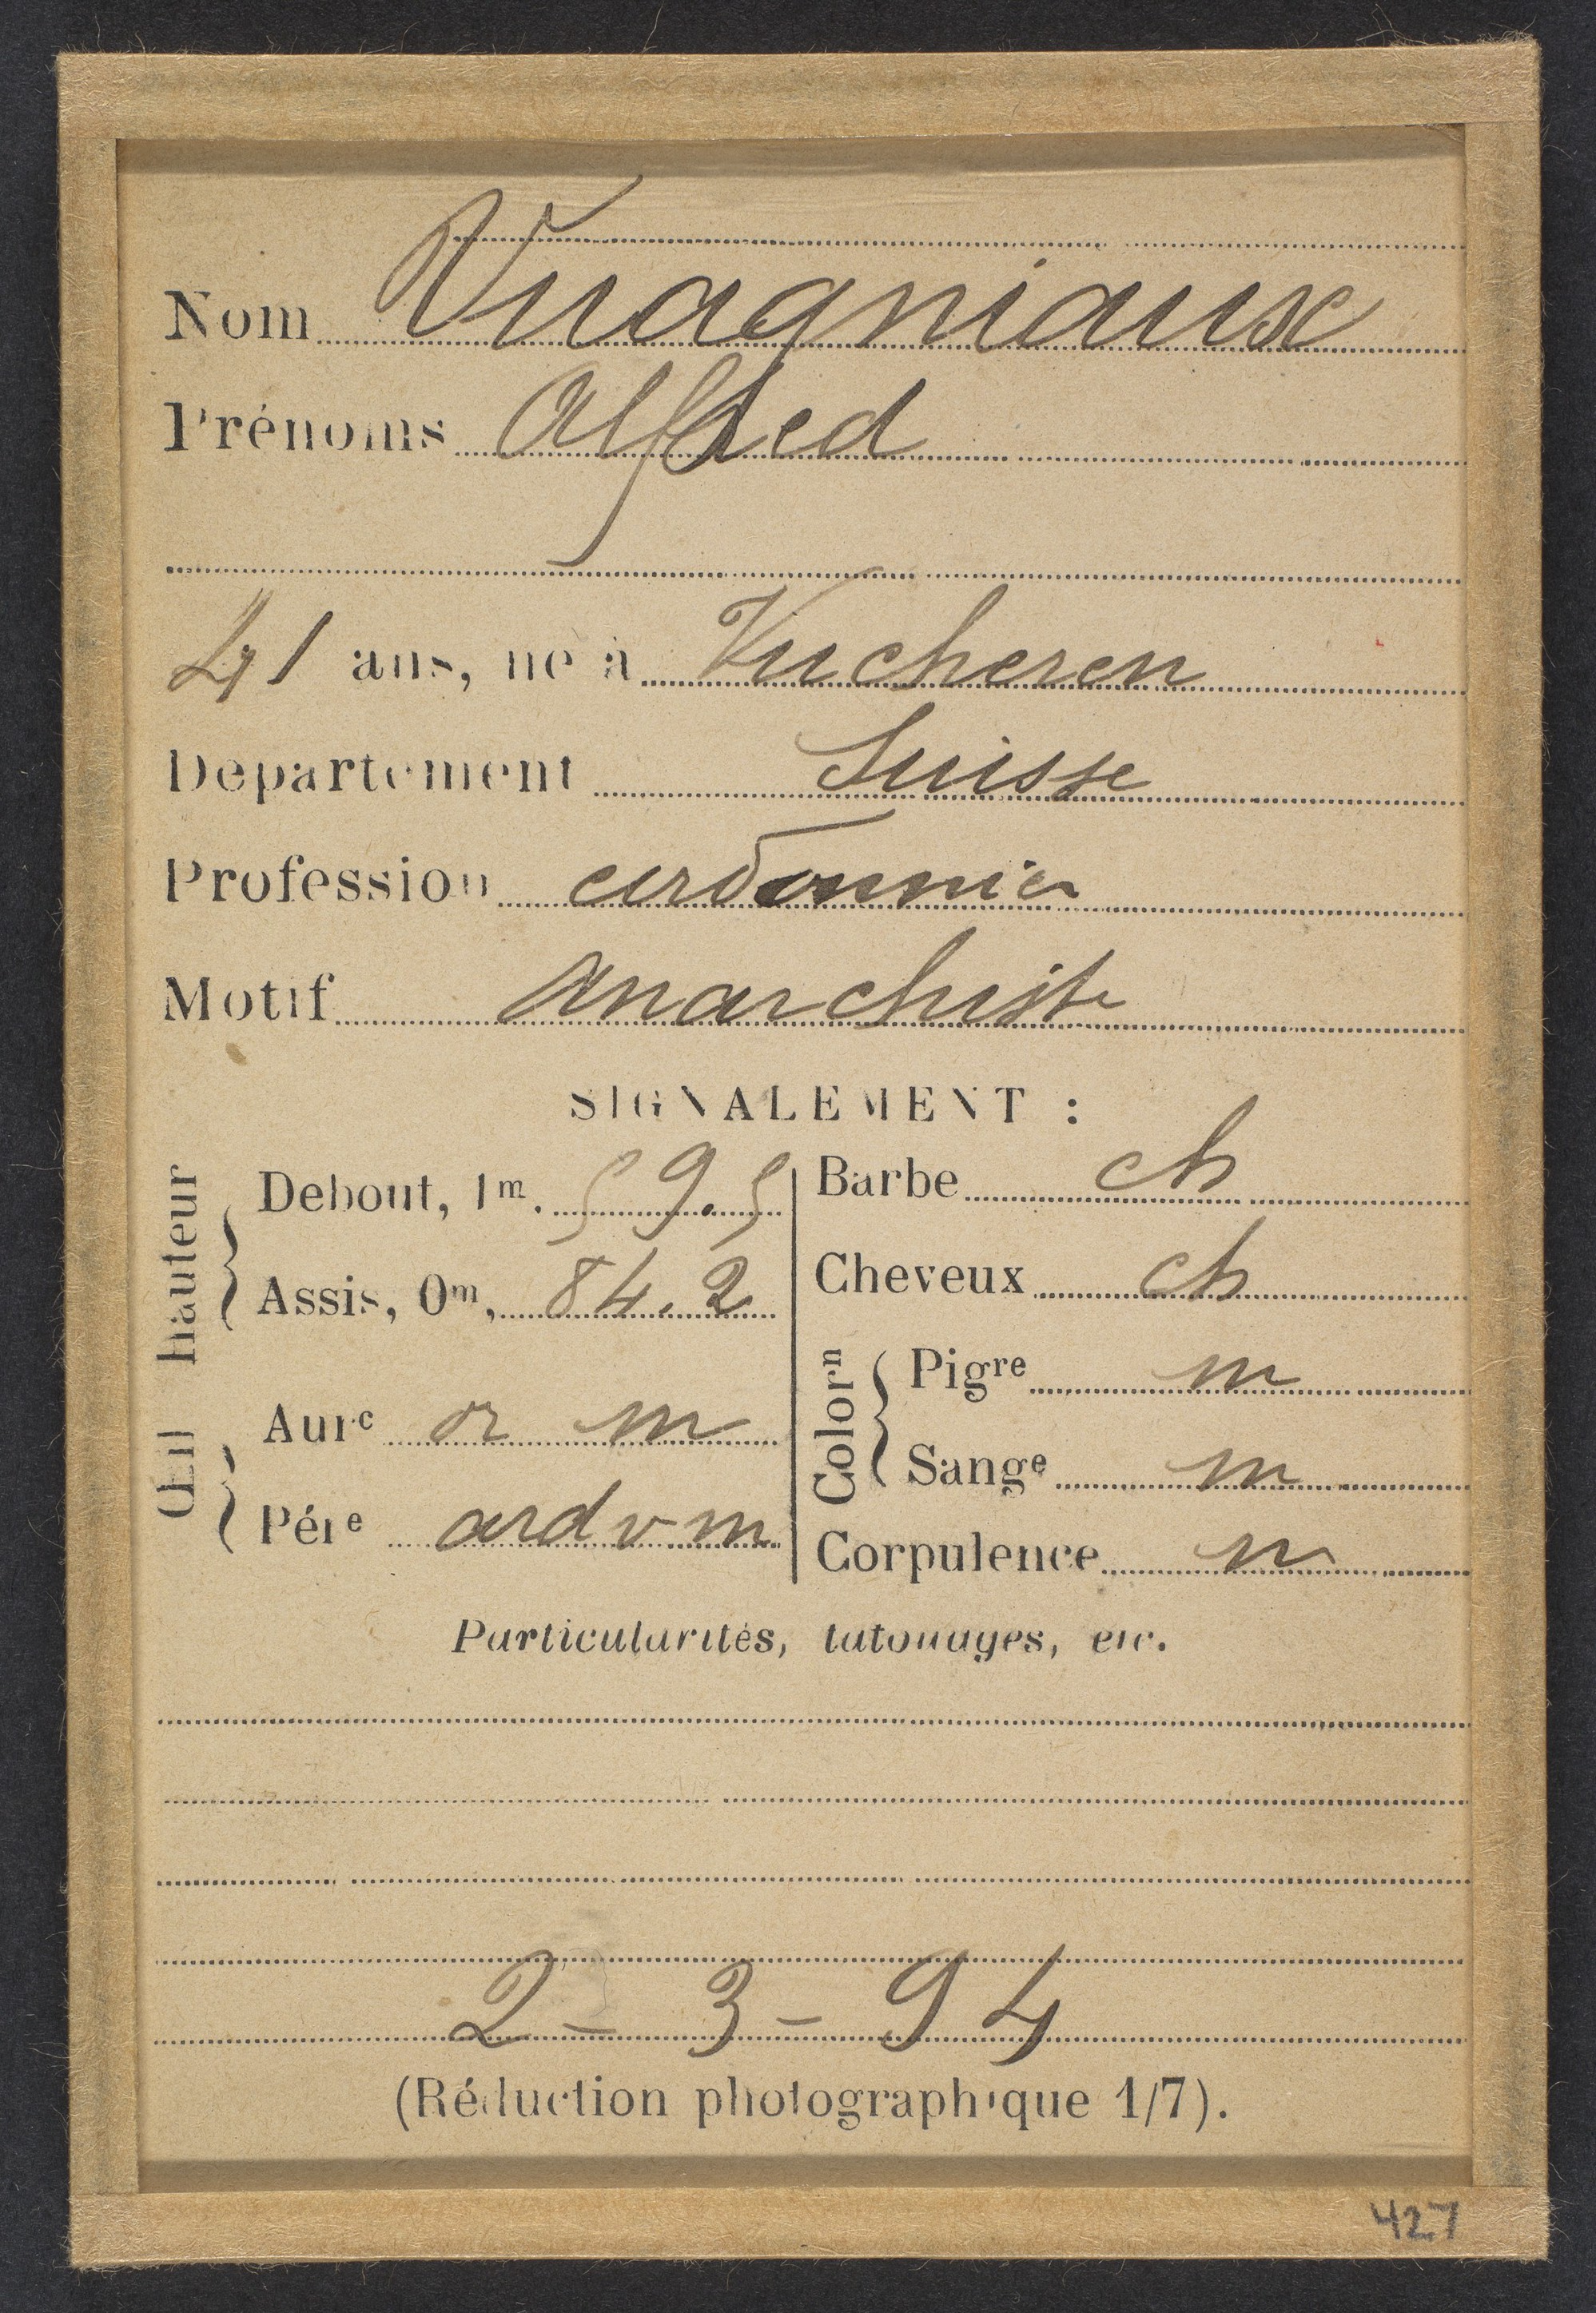 Nom Vuagniaux
Prénoms Alfred
41 ans, né à Vucheren
Département Suisse
Profession cordonnier
Motif Anarchiste
SIGNALEMENT :
Hauteur
Debout, 1m. 59.5
Assis, 0m, 84.2
Œil
Aure or m
Pére ard v m
Barbe ch
Cheveux ch
Colorn
Pigre m
Sange m
Corpulence m
Particularités, tatouages, etc.
2 - 3 - 94
(Réduction photographique 1/7).
427